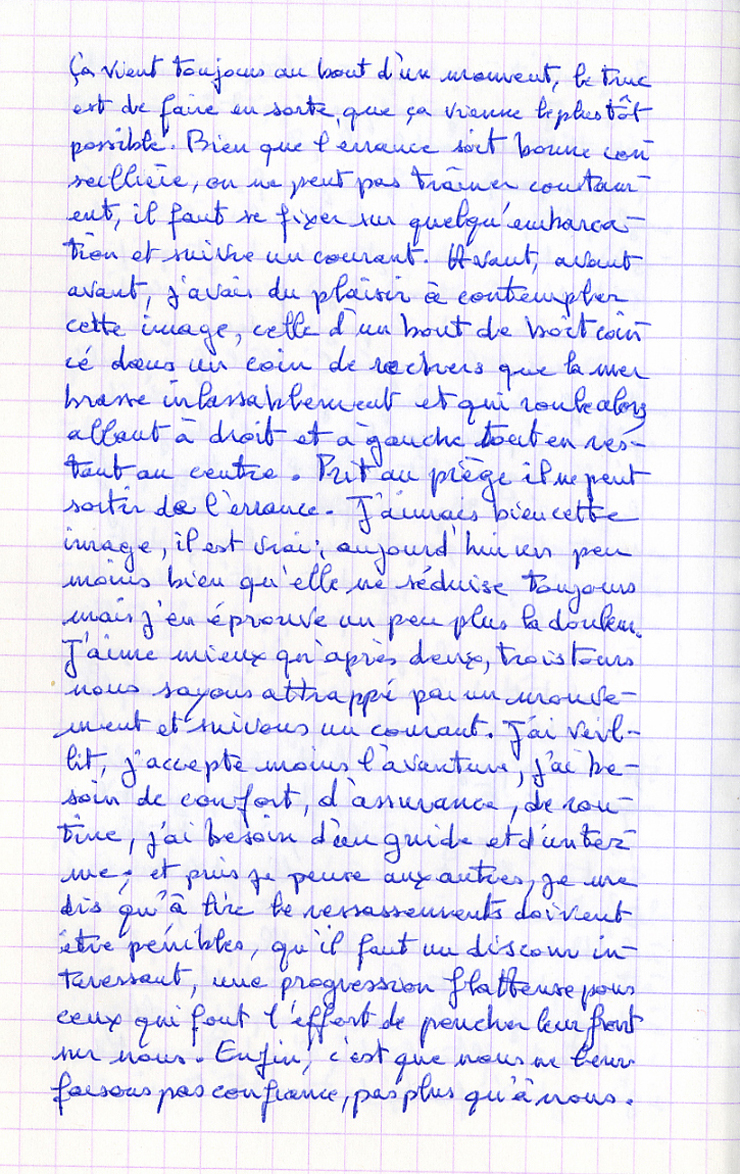 Ça vient toujours au bout d'un moment, le truc
est de faire en sorte, que ça vienne le plus tôt
possible. Bien que l'errance soit bonne con-
seillière, on ne peut pas traîner constam-
ent, il faut se fixer sur quelqu'embarca-
tion et suivre un courant. Avant, avant
avant, j'avais du plaisir à contempler
cette image, celle d'un bout de boit coin-
cé dans un coin de rochers que la mer
brasse inlassablement et qui roule alors
allant à droit et à gauche tout en res-
tant au centre. Prit au piège il ne peut
sortir de l'errance. J'aimais bien cette
image, il est vrai; aujourd'hui un peu
moins bien qu'elle ne séduise toujours
mais j'en éprouve un peu plus la douleur.
J'aime mieux qu'après deux, trois tours
nous soyons attrappé par un mouve-
ment et suivons un courant. J'ai veil-
lit, j'accepte moins l'avanture, j'ai be-
soin de confort, d'assurance, de rou-
tine, j'ai besoin d'un guide et d'un ter-
me; et puis je pense aux autres, je me
dis qu'à lire le ressassements doivent
être pénibles, qu'il faut un discour in-
teressant, une progression flatteuse pour
ceux qui font l'effort de pencher leur front
sur nous. Enfin, c'est que nous ne leur
faisons pas confiance, pas plus qu'à nous.